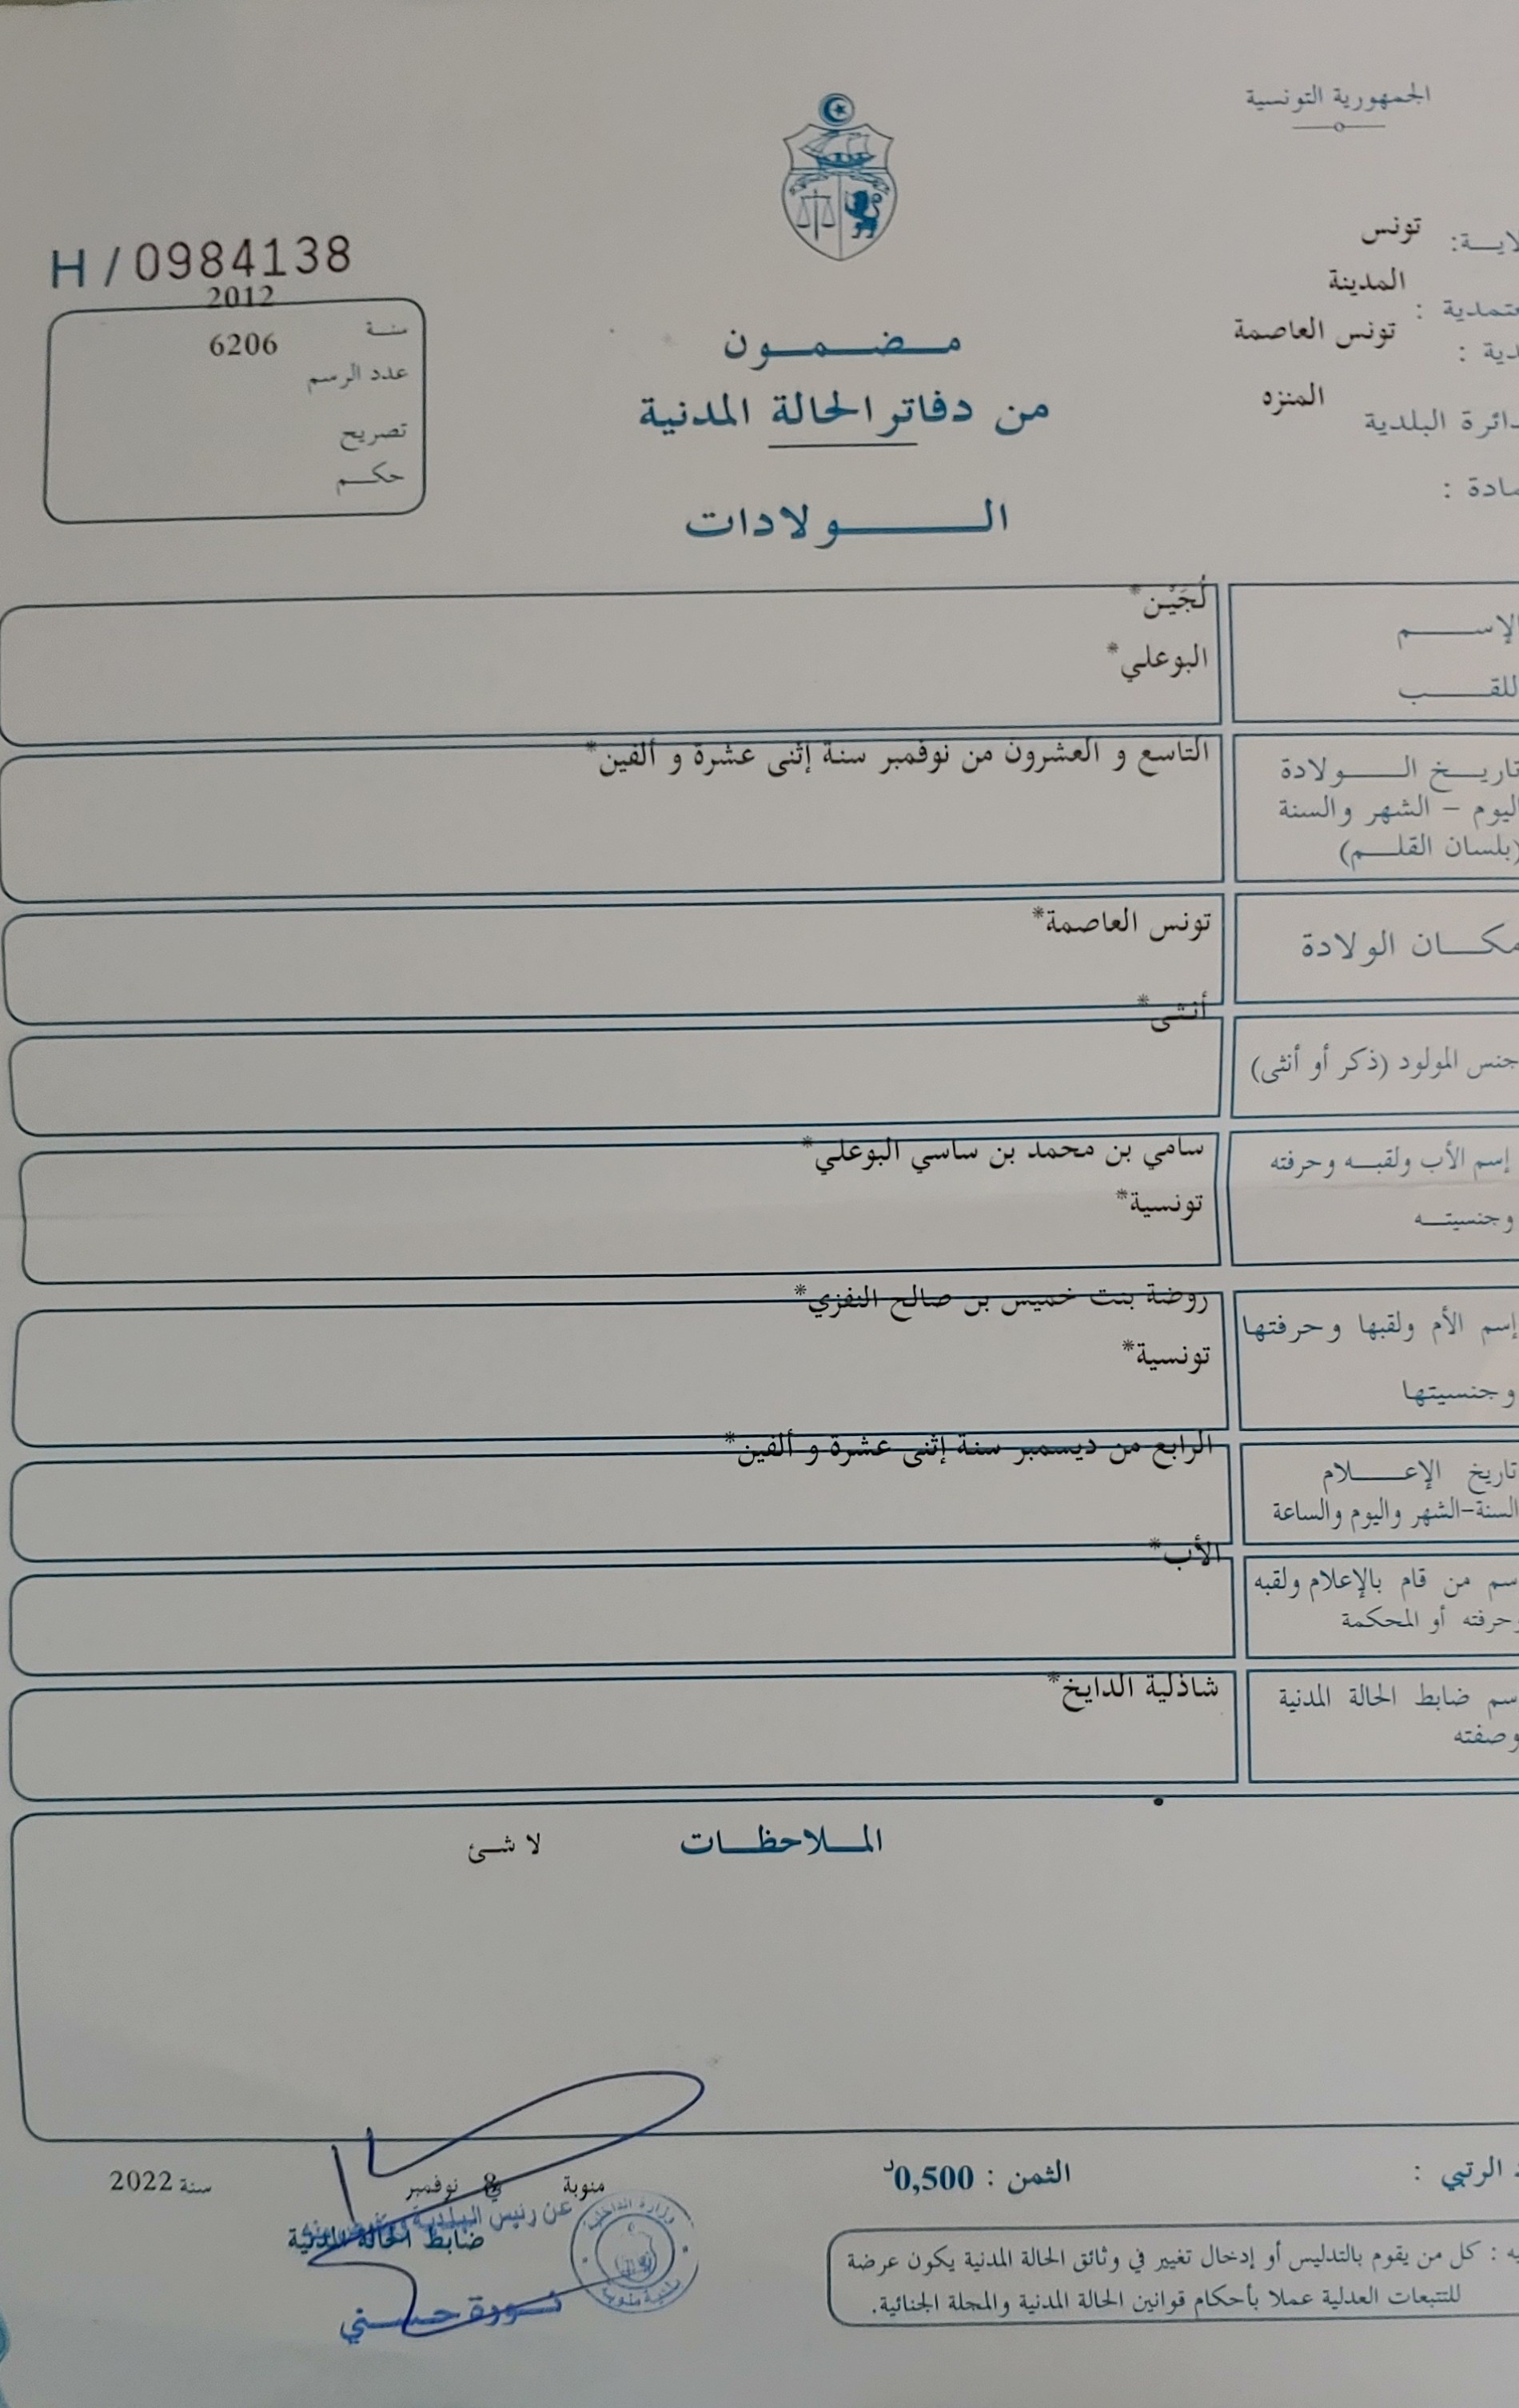 الجمهورية التونسية
تونس
المدينة
تونس العاصمة
المنزه
البلدية
H / 0984138
سنة 2012
عدد الرسم 6206
تصريح
حكم
مضمون
من دفاتر الحالة المدنية
الولادات
الإسم لُجَيْن*
اللقب البوعلي*
تاريخ الولادة التاسع و العشرون من نوفمبر سنة إثنى عشرة و ألفين*
اليوم – الشهر والسنة
(بلسان القلم)
مكان الولادة تونس العاصمة*
جنس المولود (ذكر أو أنثى) أنثى*
إسم الأب ولقبه وحرفته سامي بن محمد بن ساسي البوعلي*
وجنسيته تونسية*
إسم الأم ولقبها وحرفتها روضة بنت خميس بن صالح النفزي*
وجنسيتها تونسية*
تاريخ الإعلام الرابع من ديسمبر سنة إثنى عشرة و ألفين*
السنة-الشهر واليوم والساعة
من قام بالإعلام ولقبه الأب*
وحرفته أو المحكمة
ضابط الحالة المدنية شاذلية الدايخ*
وصفته
الملاحظات لا شئ
الرتبي :
الثمن : 0,500د
منوبة في 8 نوفمبر سنة 2022
عن رئيس البلدية
ضابط الحالة المدنية
وزارة الداخلية
بلدية منوبة
حسني
: كل من يقوم بالتدليس أو إدخال تغيير في وثائق الحالة المدنية يكون عرضة
للتتبعات العدلية عملا بأحكام قوانين الحالة المدنية والمجلة الجنائية.